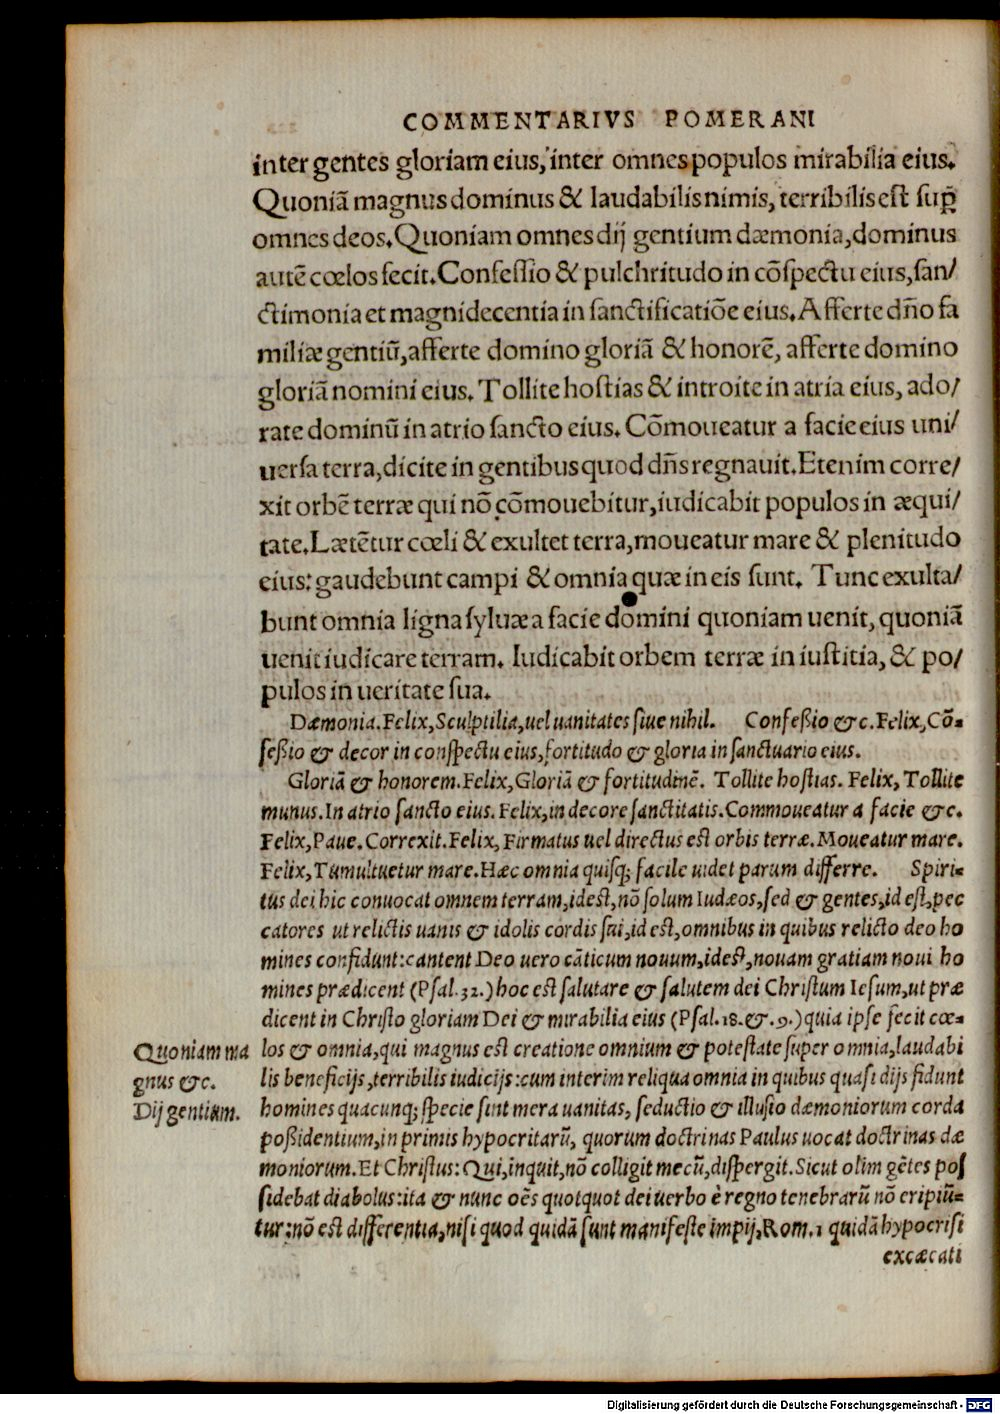 COMMENTARIVS POMERANI
inter gentes gloriam eius, inter omnes populos mirabilia eius.
Quoniã magnus dominus & laudabilis nimis, terribilis est sup̃
omnes deos. Quoniam omnes dij gentium dæmonia, dominus
autẽ cœlos fecit. Confessio & pulchritudo in cõspectu eius, san/
ctimonia et magnidecentia in sanctificatiõe eius. Afferte dño fa
miliæ gentiũ, afferte domino gloriã & honorẽ, afferte domino
gloriã nomini eius. Tollite hostias & introite in atria eius, ado/
rate dominũ in atrio sancto eius. Cõmoueatur a facie eius uni/
uersa terra, dicite in gentibus quod dñs regnauit. Etenim corre/
xit orbẽ terræ qui nõ cõmouebitur, iudicabit populos in æqui/
tate. Lætẽtur cœli & exultet terra, moueatur mare & plenitudo
eius: gaudebunt campi & omnia quæ in eis sunt. Tunc exulta/
bunt omnia ligna syluæ a facie domini quoniam uenit, quoniã
uenit iudicare terram. Iudicabit orbem terræ in iustitia, & po/
pulos in ueritate sua.
Dæmonia. Felix, Sculptilia, uel uanitates siue nihil. Confeßio &c. Felix, Cõ=
feßio & decor in conspectu eius, fortitudo & gloria in sanctuario eius.
Gloriã & honorem. Felix, Gloriã & fortitudinẽ. Tollite hostias. Felix, Tollite
munus. In atrio sancto eius. Felix, in decore sanctitatis. Commoueatur a facie &c.
Felix, Paue. Correxit. Felix, Firmatus uel directus est orbis terræ. Moueatur mare.
Felix, Tumultuetur mare. Hæc omnia quisq; facile uidet parum differre. Spiri=
tus dei hic conuocat omnem terram, idest, nõ solum Iudæos, sed & gentes, id est, pec
catores ut relictis uanis & idolis cordis sui, id est, omnibus in quibus relicto deo ho
mines confidunt: cantent Deo uero cãticum nouum, idest, nouam gratiam noui ho
mines prædicent (Psal. 32.) hoc est salutare & salutem dei Christum Iesum, ut præ
dicent in Christo gloriam Dei & mirabilia eius (Psal. 18. &. 9.) quia ipse fecit cœ=
Quoniam ma
gnus &c.
Dij gentium.
los & omnia, qui magnus est creatione omnium & potestate super omnia, laudabi
lis beneficijs, terribilis iudicijs: cum interim reliqua omnia in quibus quasi dijs fidunt
homines quacunq; specie sint mera uanitas, seductio & illusio dæmoniorum corda
poßidentium, in primis hypocritarũ, quorum doctrinas Paulus uocat doctrinas dæ
moniorum. Et Christus: Qui, inquit, nõ colligit mecũ, dispergit. Sicut olim gẽtes pos
sidebat diabolus: ita & nunc oẽs quotquot dei uerbo è regno tenebrarũ nõ eripiũ=
tur: nõ est differentia, nisi quod quidã sunt manifeste impij, Rom. 1 quidã hypocrisi
excæcati
Digitalisierung gefördert durch die Deutsche Forschungsgemeinschaft - DFG